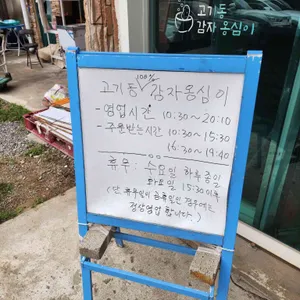 고기동
감자 옹심이
100%
고기동 감자옹심이
- 영업시간 10:30~20:10
- 주문받는시간 10:30~15:30
16:30~19:40
휴무: 수요일 하루종일
화요일 15:30 이후
(단 휴무일이 공휴일인 경우에는
정상영업 합니다)